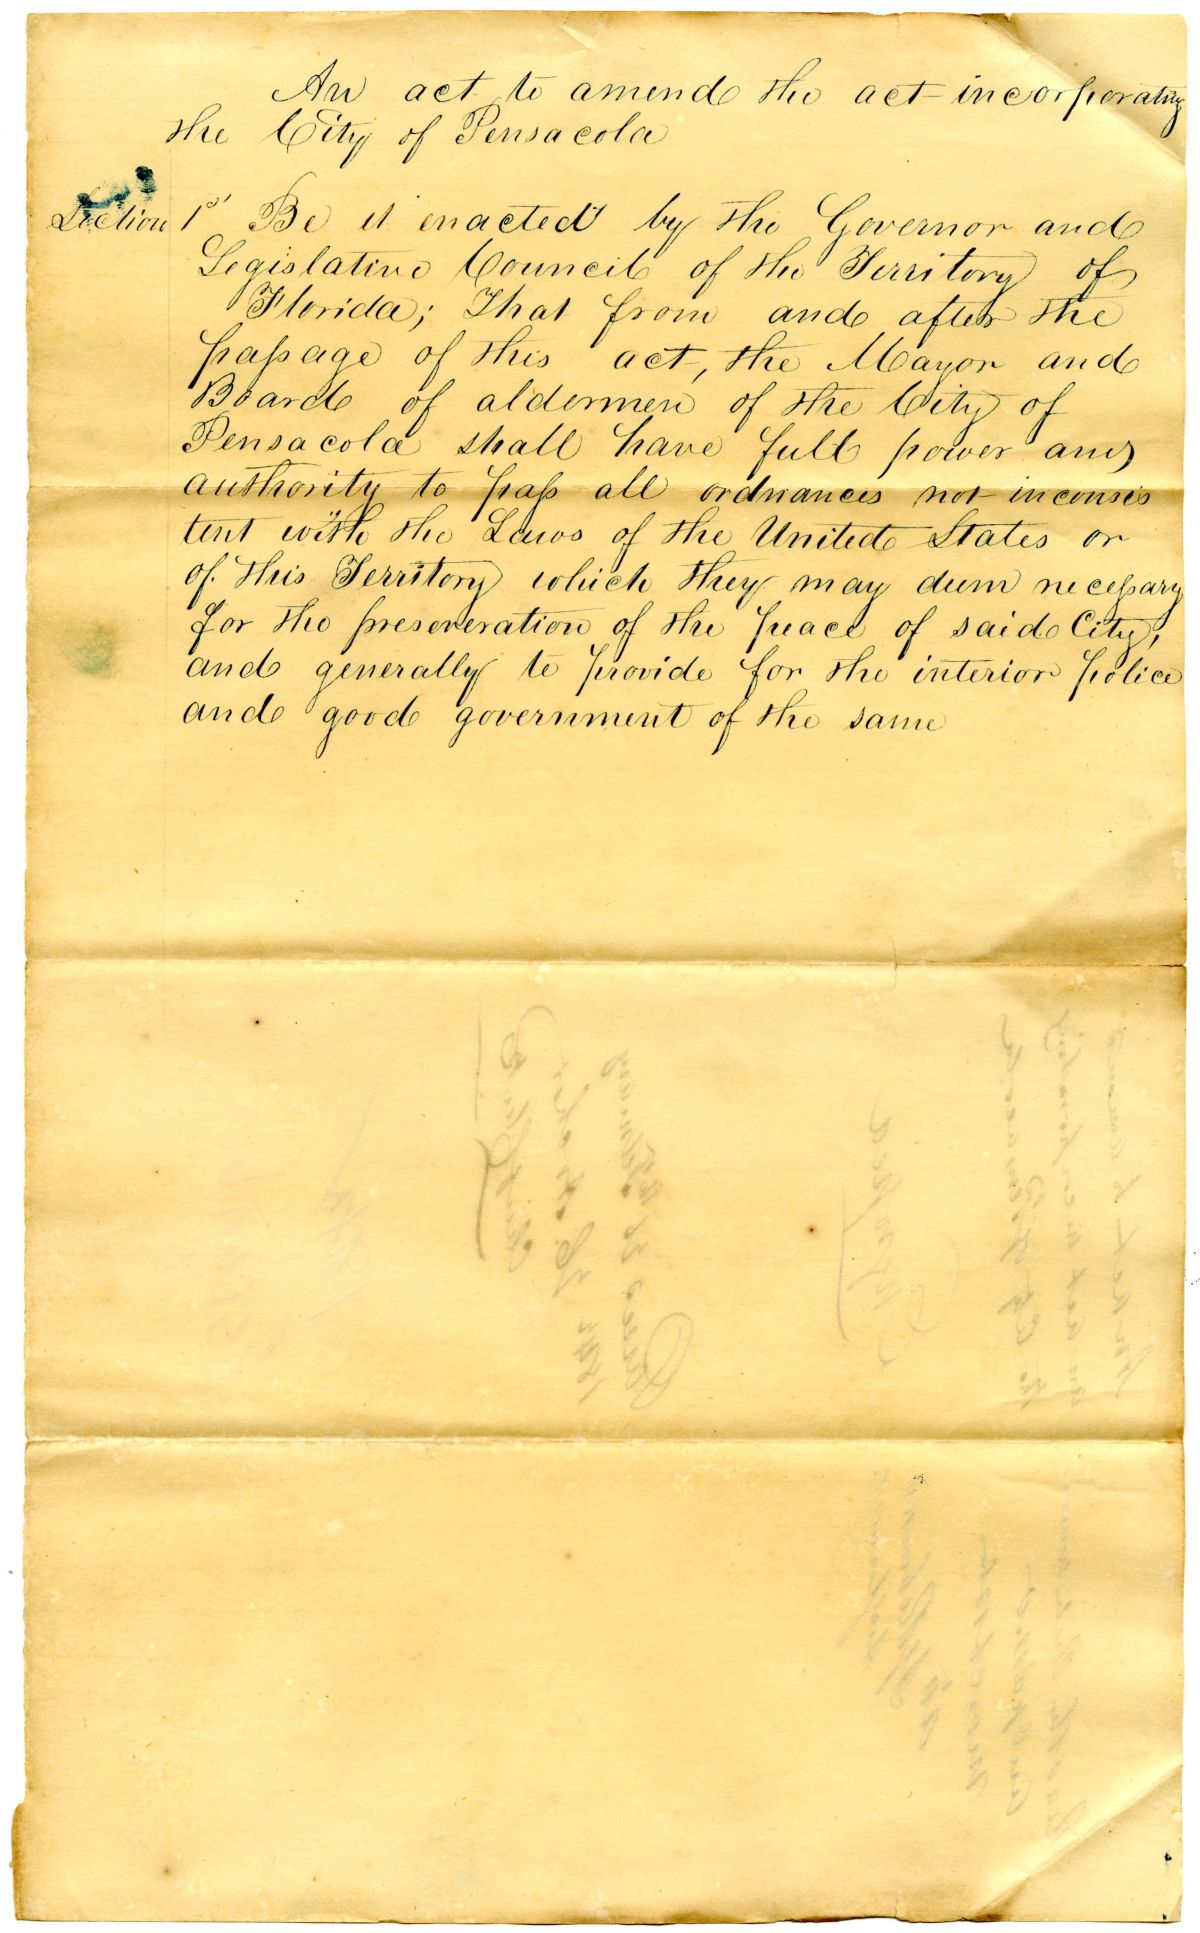 An act to amend the act incorporating
the City of Pensacola
Section 1st Be it enacted by the Governor and
Legislative Council of the Territory of
Florida; That from and after the
passage of this act, the Mayor and
Board of aldermen of the City of
Pensacola shall have full power and
authority to pass all ordnances not inconsis
tent with the Laws of the United States or
of this Territory which they may deem necessary
for the preserveration of the peace of said City,
and generally to provide for the interior police
and good government of the same